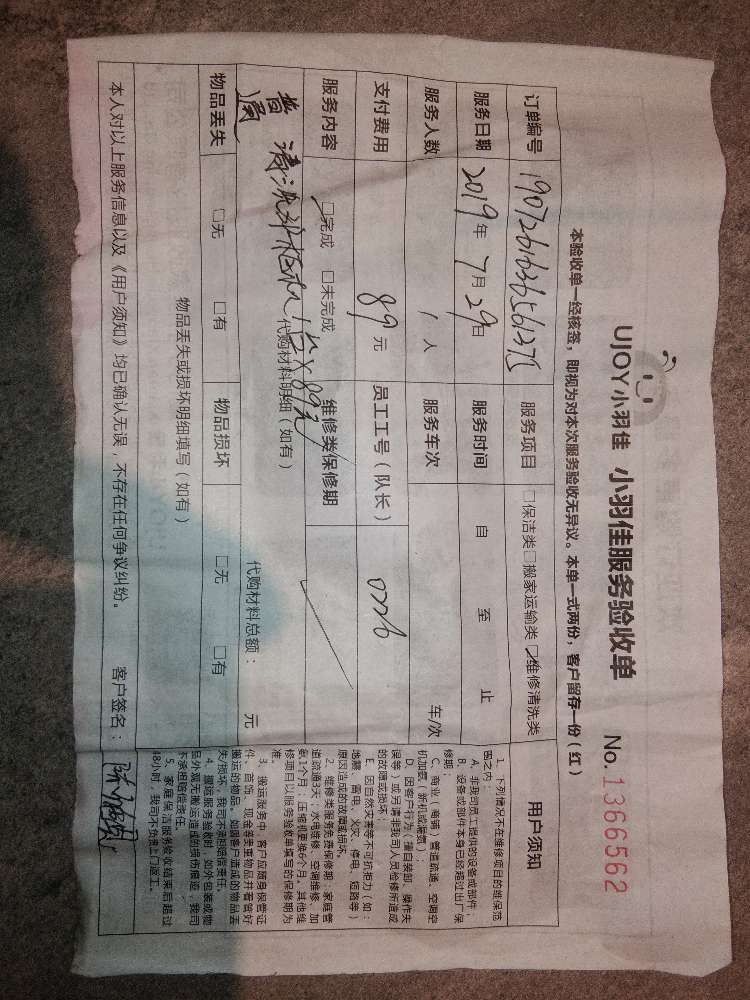 UJOY小羽佳 小羽佳服务验收单 No.1366562
本验收单一经核签，即视为对本次服务验收无异议。本单一式两份，客户留存一份（红）
订单编号 服务项目 □保洁类□搬家运输类□维修清洗类
服务日期 2019年7月29日 服务时间 自 至 止
服务人数 1人 服务车次 车/次
支付费用 89元 员工工号（队长）
服务内容 □完成 □未完成 维修类保修期
代购材料明细（如有） 代购材料总额： 元
1台×89元
物品丢失 □无 □有 物品损坏 □无 □有
物品丢失或损坏明细填写（如有）
本人对以上服务信息以及《用户须知》均已确认无误，不存在任何争议纠纷。 客户签名：
用户须知
1、下列情况不在维修项目的维保范
围之内
A、非我司员工提供的设备或部件；
B、设备或部件本身已经超过出厂保
修期；
C、商业（商铺）管道疏通、空调空
机加氨（新机或漏氨）
D、因客户行为（擅自装卸、操作失
误等）或另请非我司人员检修所造成
的故障或损坏；
E、因自然灾害等不可抗拒力（如：
地震、雷电、火灾、停电、短路等）
原因造成的故障或损坏。
2、维修类服务免费保修期：家庭管
道疏通3天；水电维修、空调维修、加
氨1个月；压缩机更换6个月。其他维
修项目以服务验收单填写的保修期为
准。
3、搬运服务中，客户应随身保管证
件、首饰、现金等贵重物品并看管好
搬运的物品。如因客户造成的物品丢
失/损坏，我司不承担赔偿责任。
4、搬运服务验收时，如外包装或物
品外观无搬运造成的损伤痕迹，我司
不承担赔偿责任。
5、家庭保洁服务验收结束后超过
48小时，我司不负责上门返工。